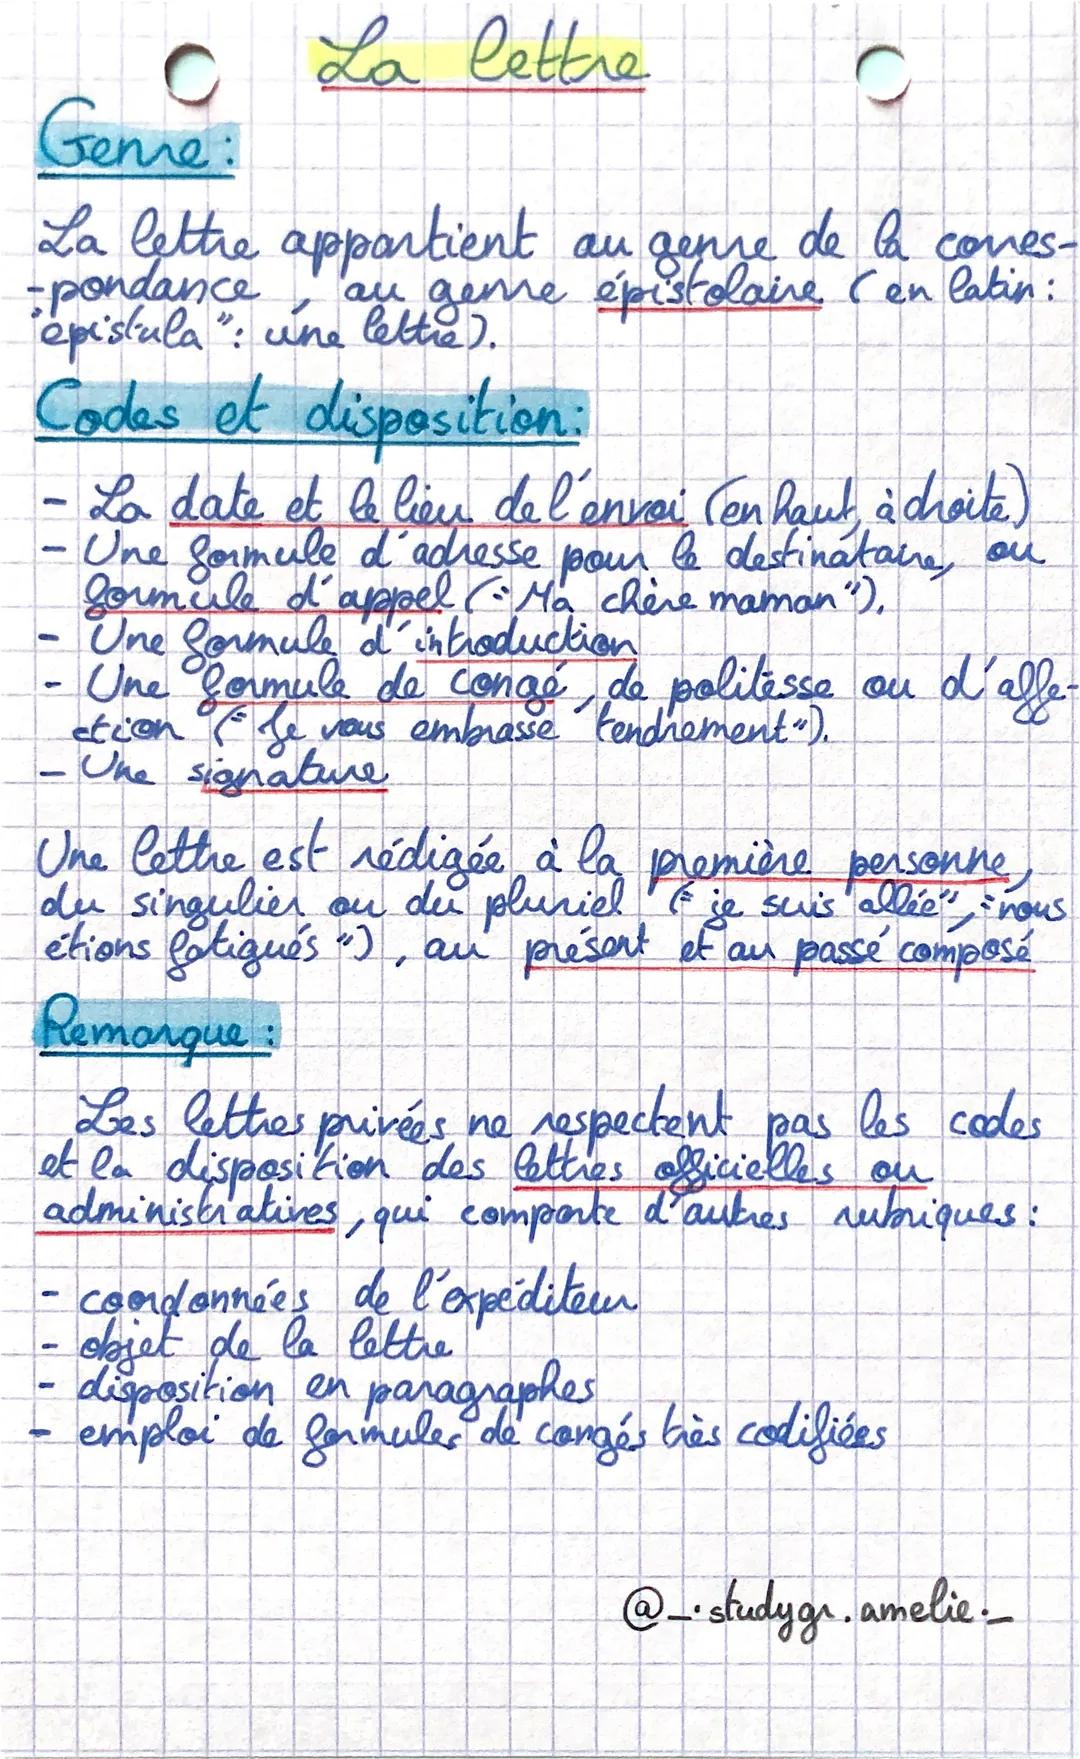 La lettre
Genre :
La lettre appartient au genre de la corres-
-pondance, au genre épistolaire (en latin :
"epistula" : une lettre).
Codes et disposition :
- La date et le lieu de l'envoi (en haut, à droite)
- Une formule d'adresse pour le destinataire, ou
formule d'appel ("Ma chère maman").
- Une formule d'introduction
- Une formule de congé, de politesse ou d'affe-
ction ("Je vous embrasse tendrement").
- Une signature
Une lettre est rédigée à la première personne,
du singulier ou du pluriel ("je suis allée", "nous
étions fatigués"), au présent et au passé composé
Remarque :
Les lettres privées ne respectent pas les codes
et la disposition des lettres officielles ou
administratives, qui comporte d'autres rubriques :
- coordonnées de l'expéditeur
- objet de la lettre
- disposition en paragraphes
- emploi de formules de congés très codifiées
@_.studygr.amelie._